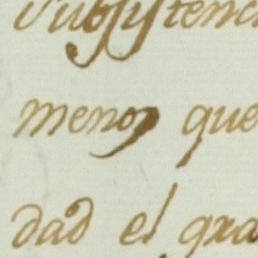 Subsistenci
menos que
dad el gra